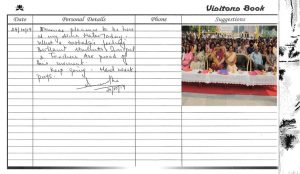 Visitors Book
Date Personal Details Phone Suggestions
It was pleasure to be here
at my Alma Mater today.
What a nostalgic feeling
Brilliant students, Principal
& Teachers are proud of
this moment.
Keep going. Hard work
pays.